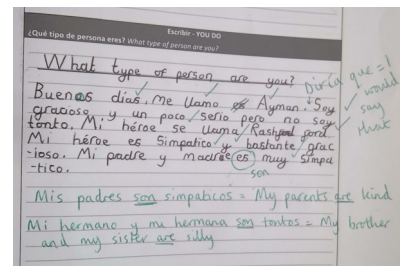 Escribir - YOU DO
¿Qué tipo de persona eres? What type of person are you?
What type of person are you?
Buenos días. Me llamo Ayman. Soy
gracioso y un poco serio pero no soy
tonto. Mi héroe se llama
Mi héroe es Simpatico y bastante grac
-ioso. Mi padre y madre es muy simpa
-tico.
son
Diría que = I
would
say
that
Mis padres son simpaticos = My parents are kind
Mi hermano y mi hermana son tontos = My brother
and my sister are silly